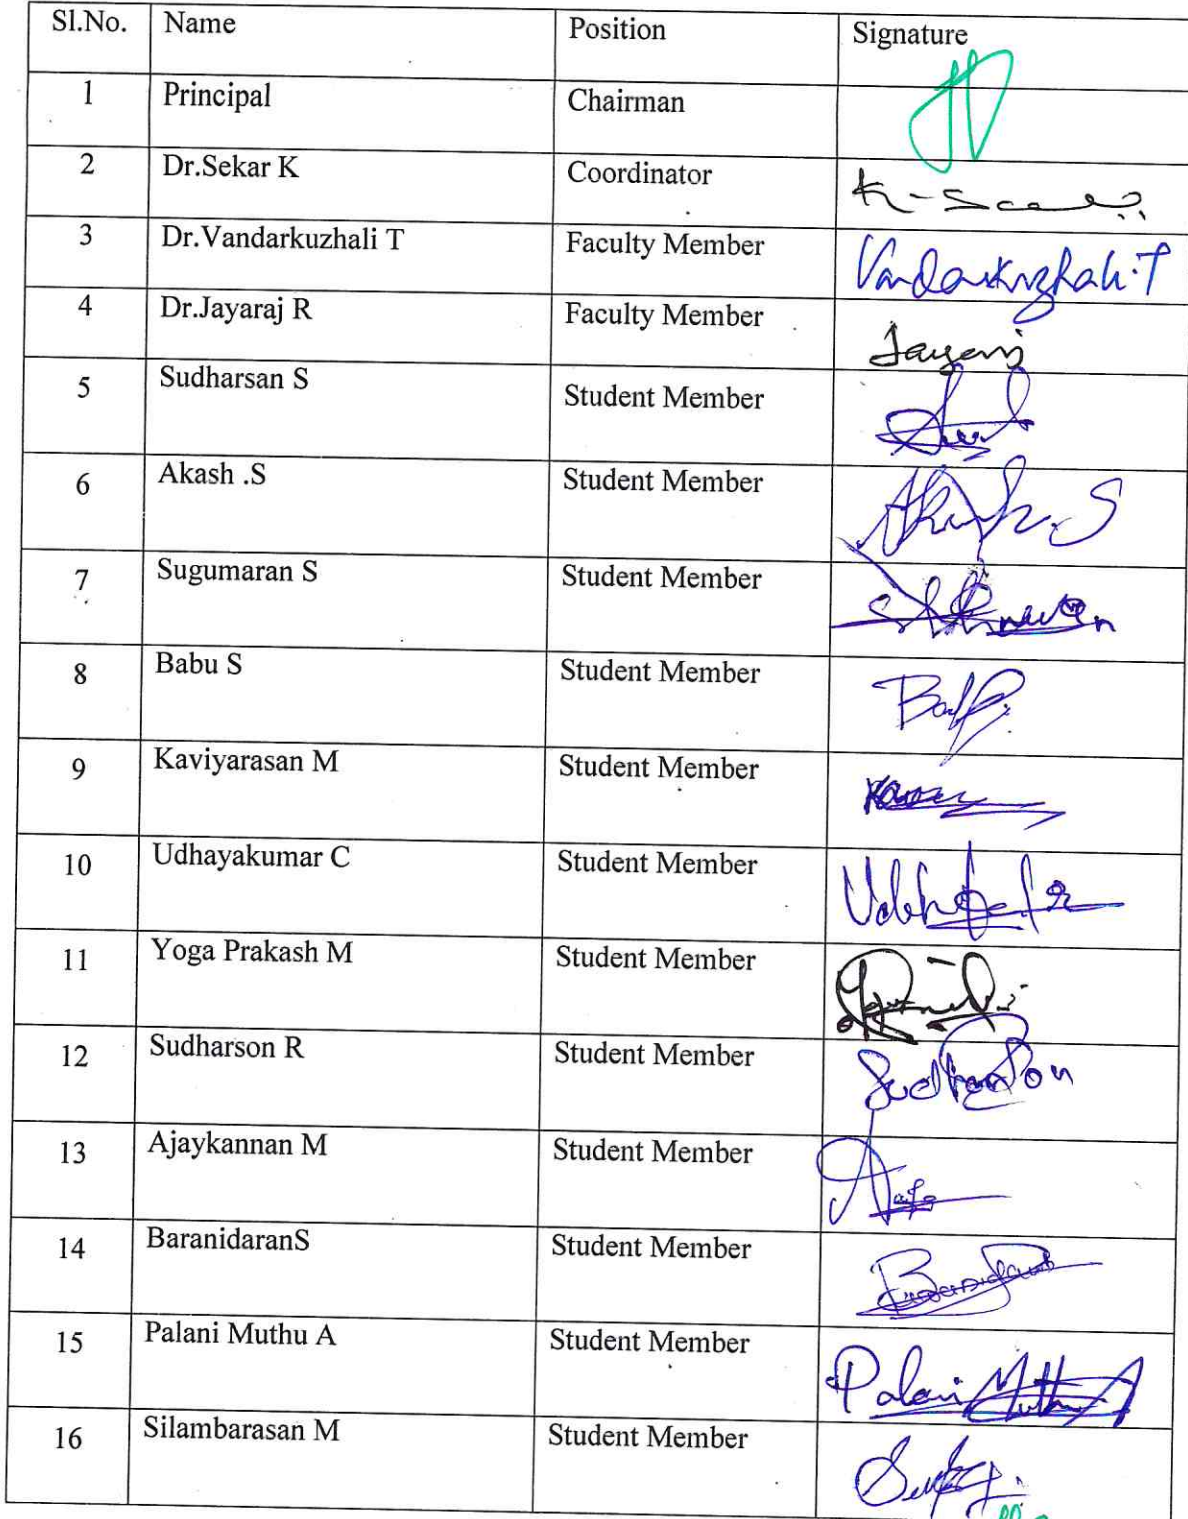 Sl.No. Name Position Signature
1 Principal Chairman
2 Dr.Sekar K Coordinator
3 Dr.Vandarkuzhali T Faculty Member Vandarkuzhali.T
4 Dr.Jayaraj R Faculty Member Jayaraj
5 Sudharsan S Student Member
6 Akash .S Student Member Akash.S
7 Sugumaran S Student Member
8 Babu S Student Member
9 Kaviyarasan M Student Member
10 Udhayakumar C Student Member
11 Yoga Prakash M Student Member
12 Sudharson R Student Member Sudharson
13 Ajaykannan M Student Member
14 BaranidaranS Student Member
15 Palani Muthu A Student Member Palani Muthu A
16 Silambarasan M Student Member